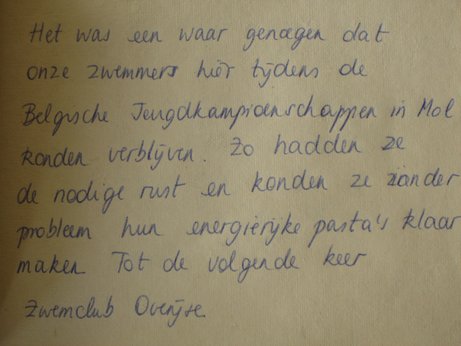 Het was een waar genoegen dat
onze zwemmers hier tijdens de
Belgische Jeugdkampioenschappen in Mol
konden verblijven. Zo hadden ze
de nodige rust en konden ze zonder
probleem hun energierijke pasta's klaar
maken. Tot de volgende keer
Zwemclub Overijse.